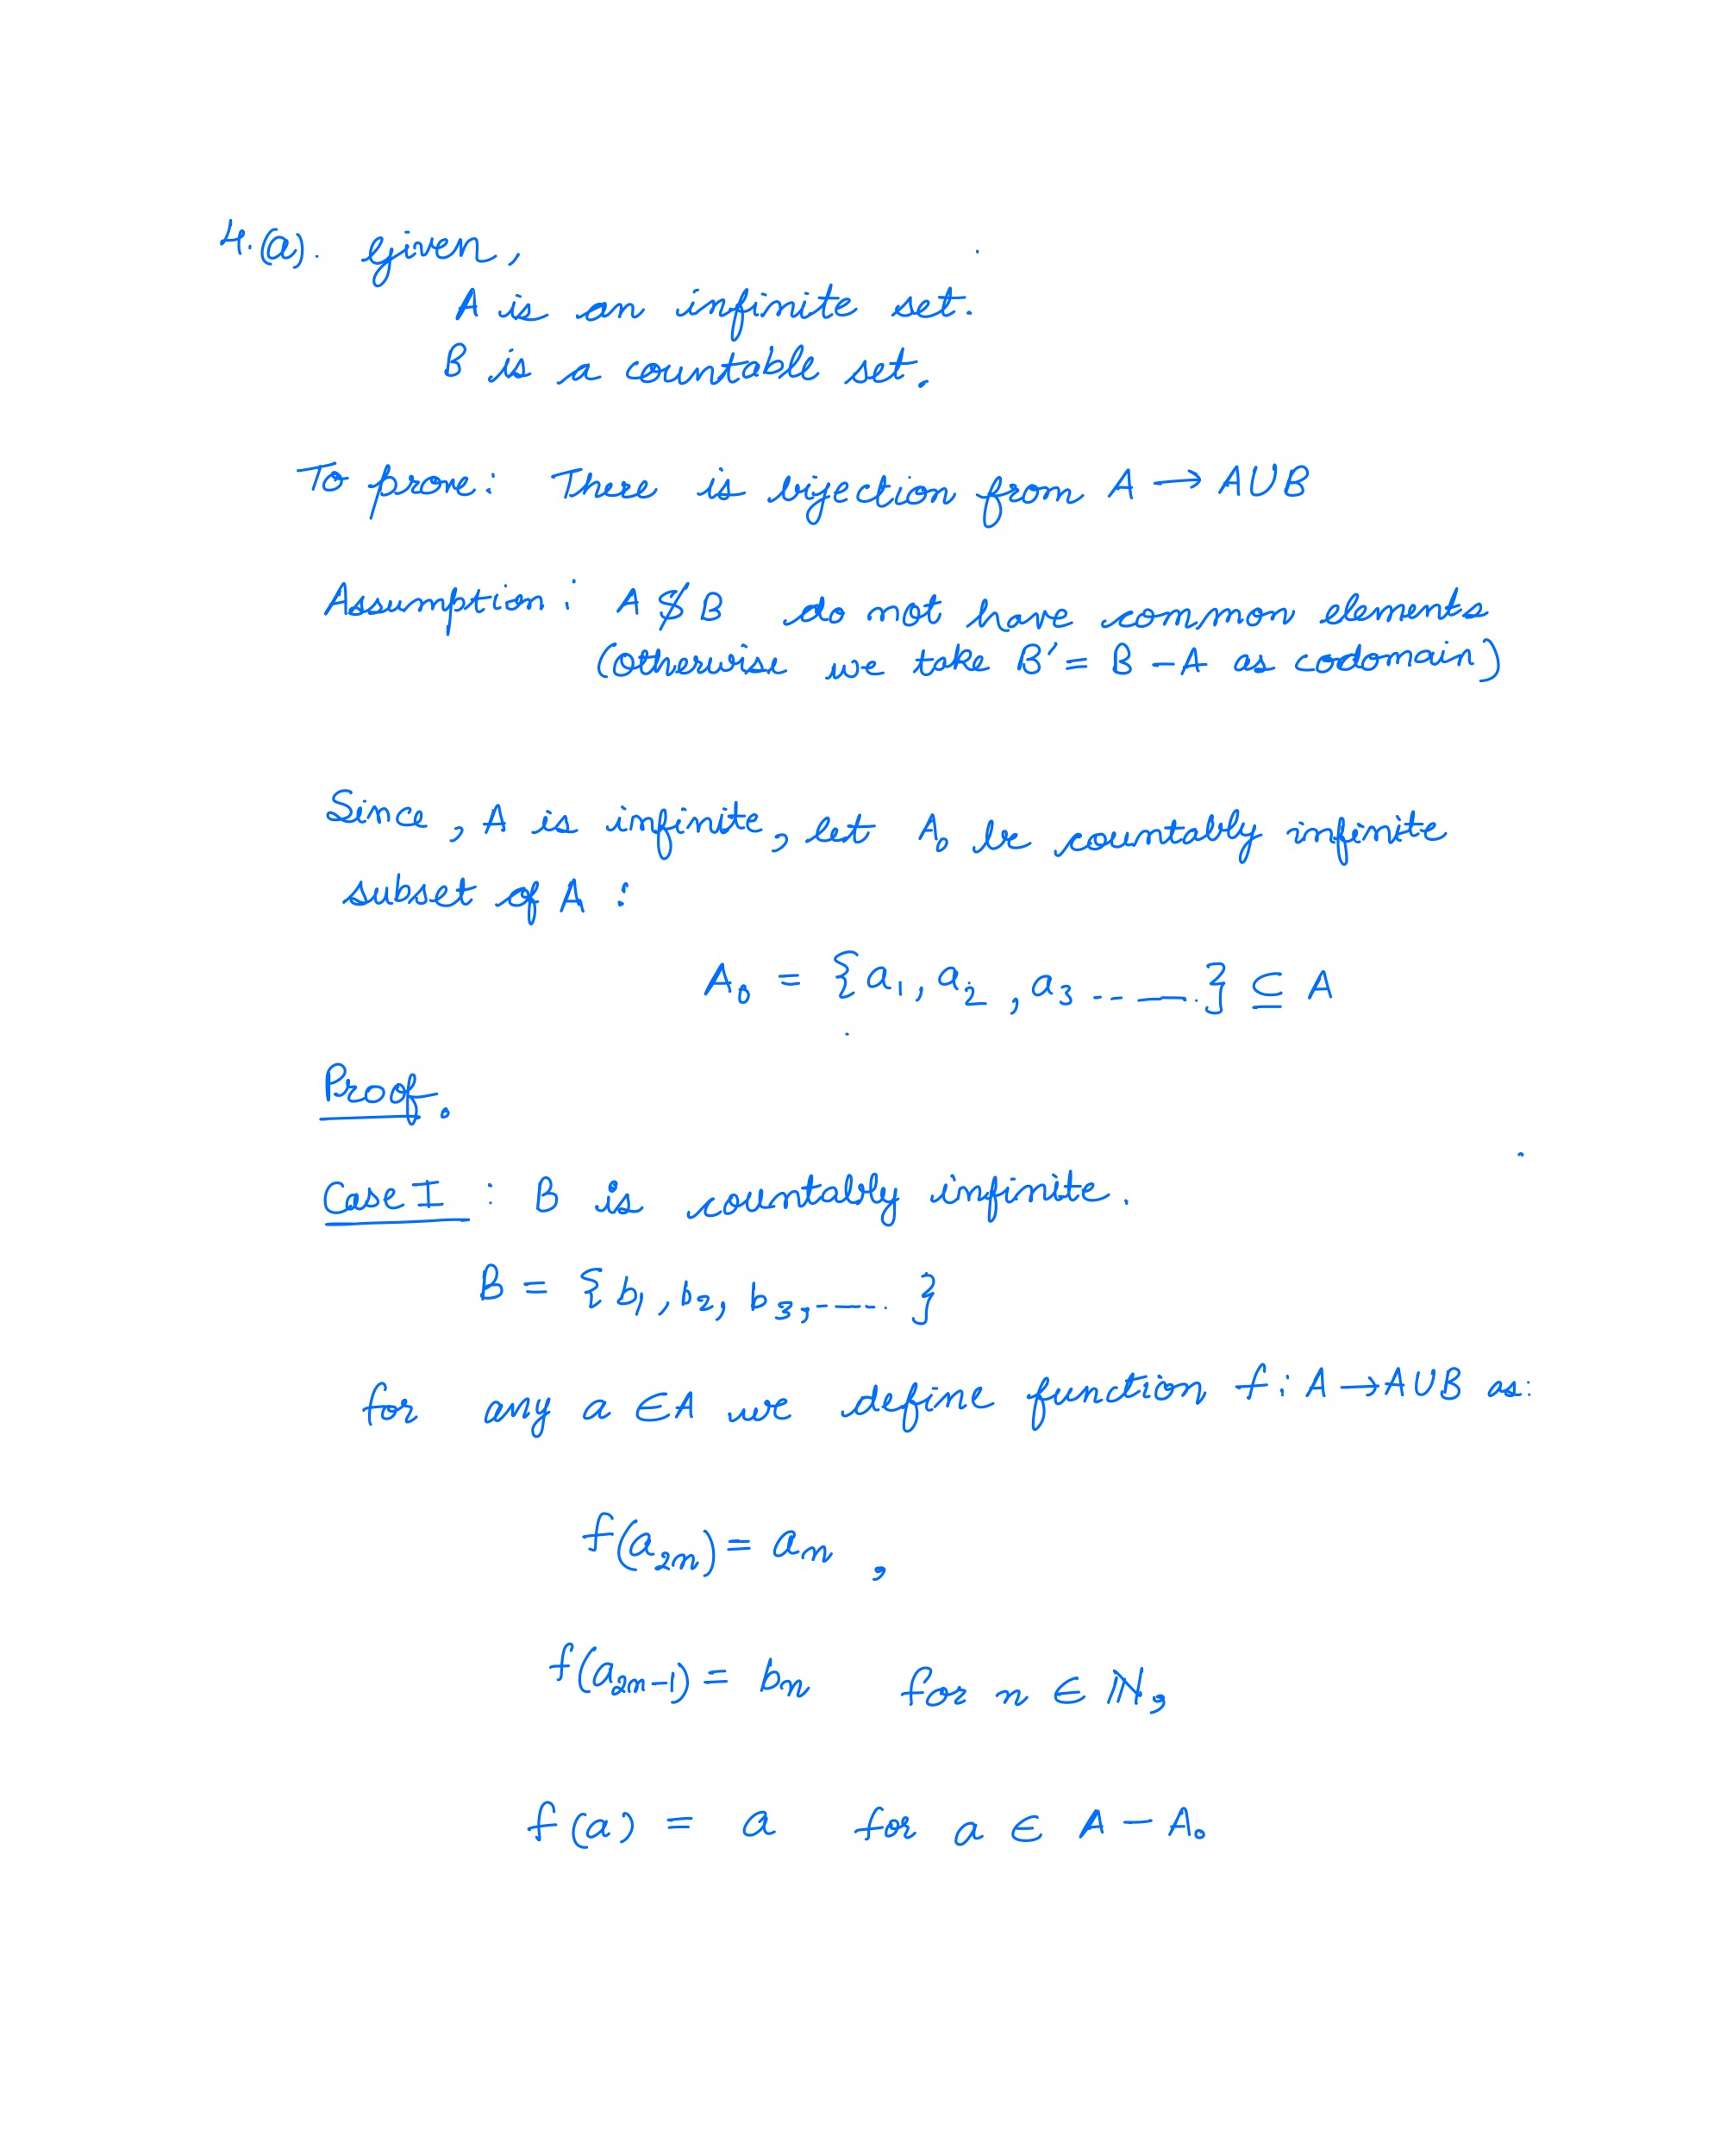 4.(a). Given,
A is an infinite set.
B is a countable set.
To prove: There is bijection from A → A∪B
Assumption: A & B do not have common elements
(Otherwise we take B' = B - A as codomain)
Since, A is infinite, let A₀ be countably infinite
subset of A :
A₀ = {a₁, a₂, a₃ ......} ⊆ A
Proof.
Case I : B is countably infinite.
B = {b₁, b₂, b₃, ...... }
for any a ∈ A we define function f: A → A∪B as:
f(a₂ₙ) = aₙ ,
f(a₂ₙ₋₁) = bₙ for n ∈ ℕ,
f(a) = a for a ∈ A - A₀